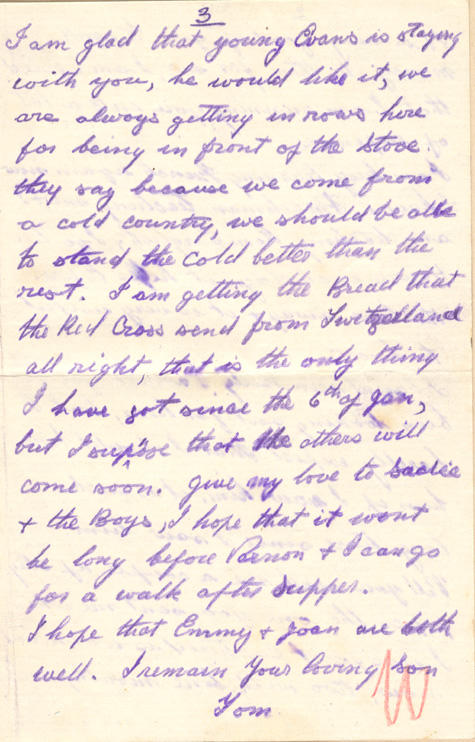 3
I am glad that young Evans is staying
with you, he would like it, we
are always getting in rows here
for being in front of the stove.
they say because we come from
a cold country, we should be able
to stand the cold better than the
rest. I am getting the Bread that
the Red Cross send from Switzelland
all right, that is the only thing
I have got since the 6th of Jan,
but I supose that the others will
come soon. give my love to Sadie
+ the Boys, I hope that it wont
be long before Renon + I can go
for a walk after supper.
I hope that Emmy + Joan are both
well. I remain Your loving Son
Tom
W